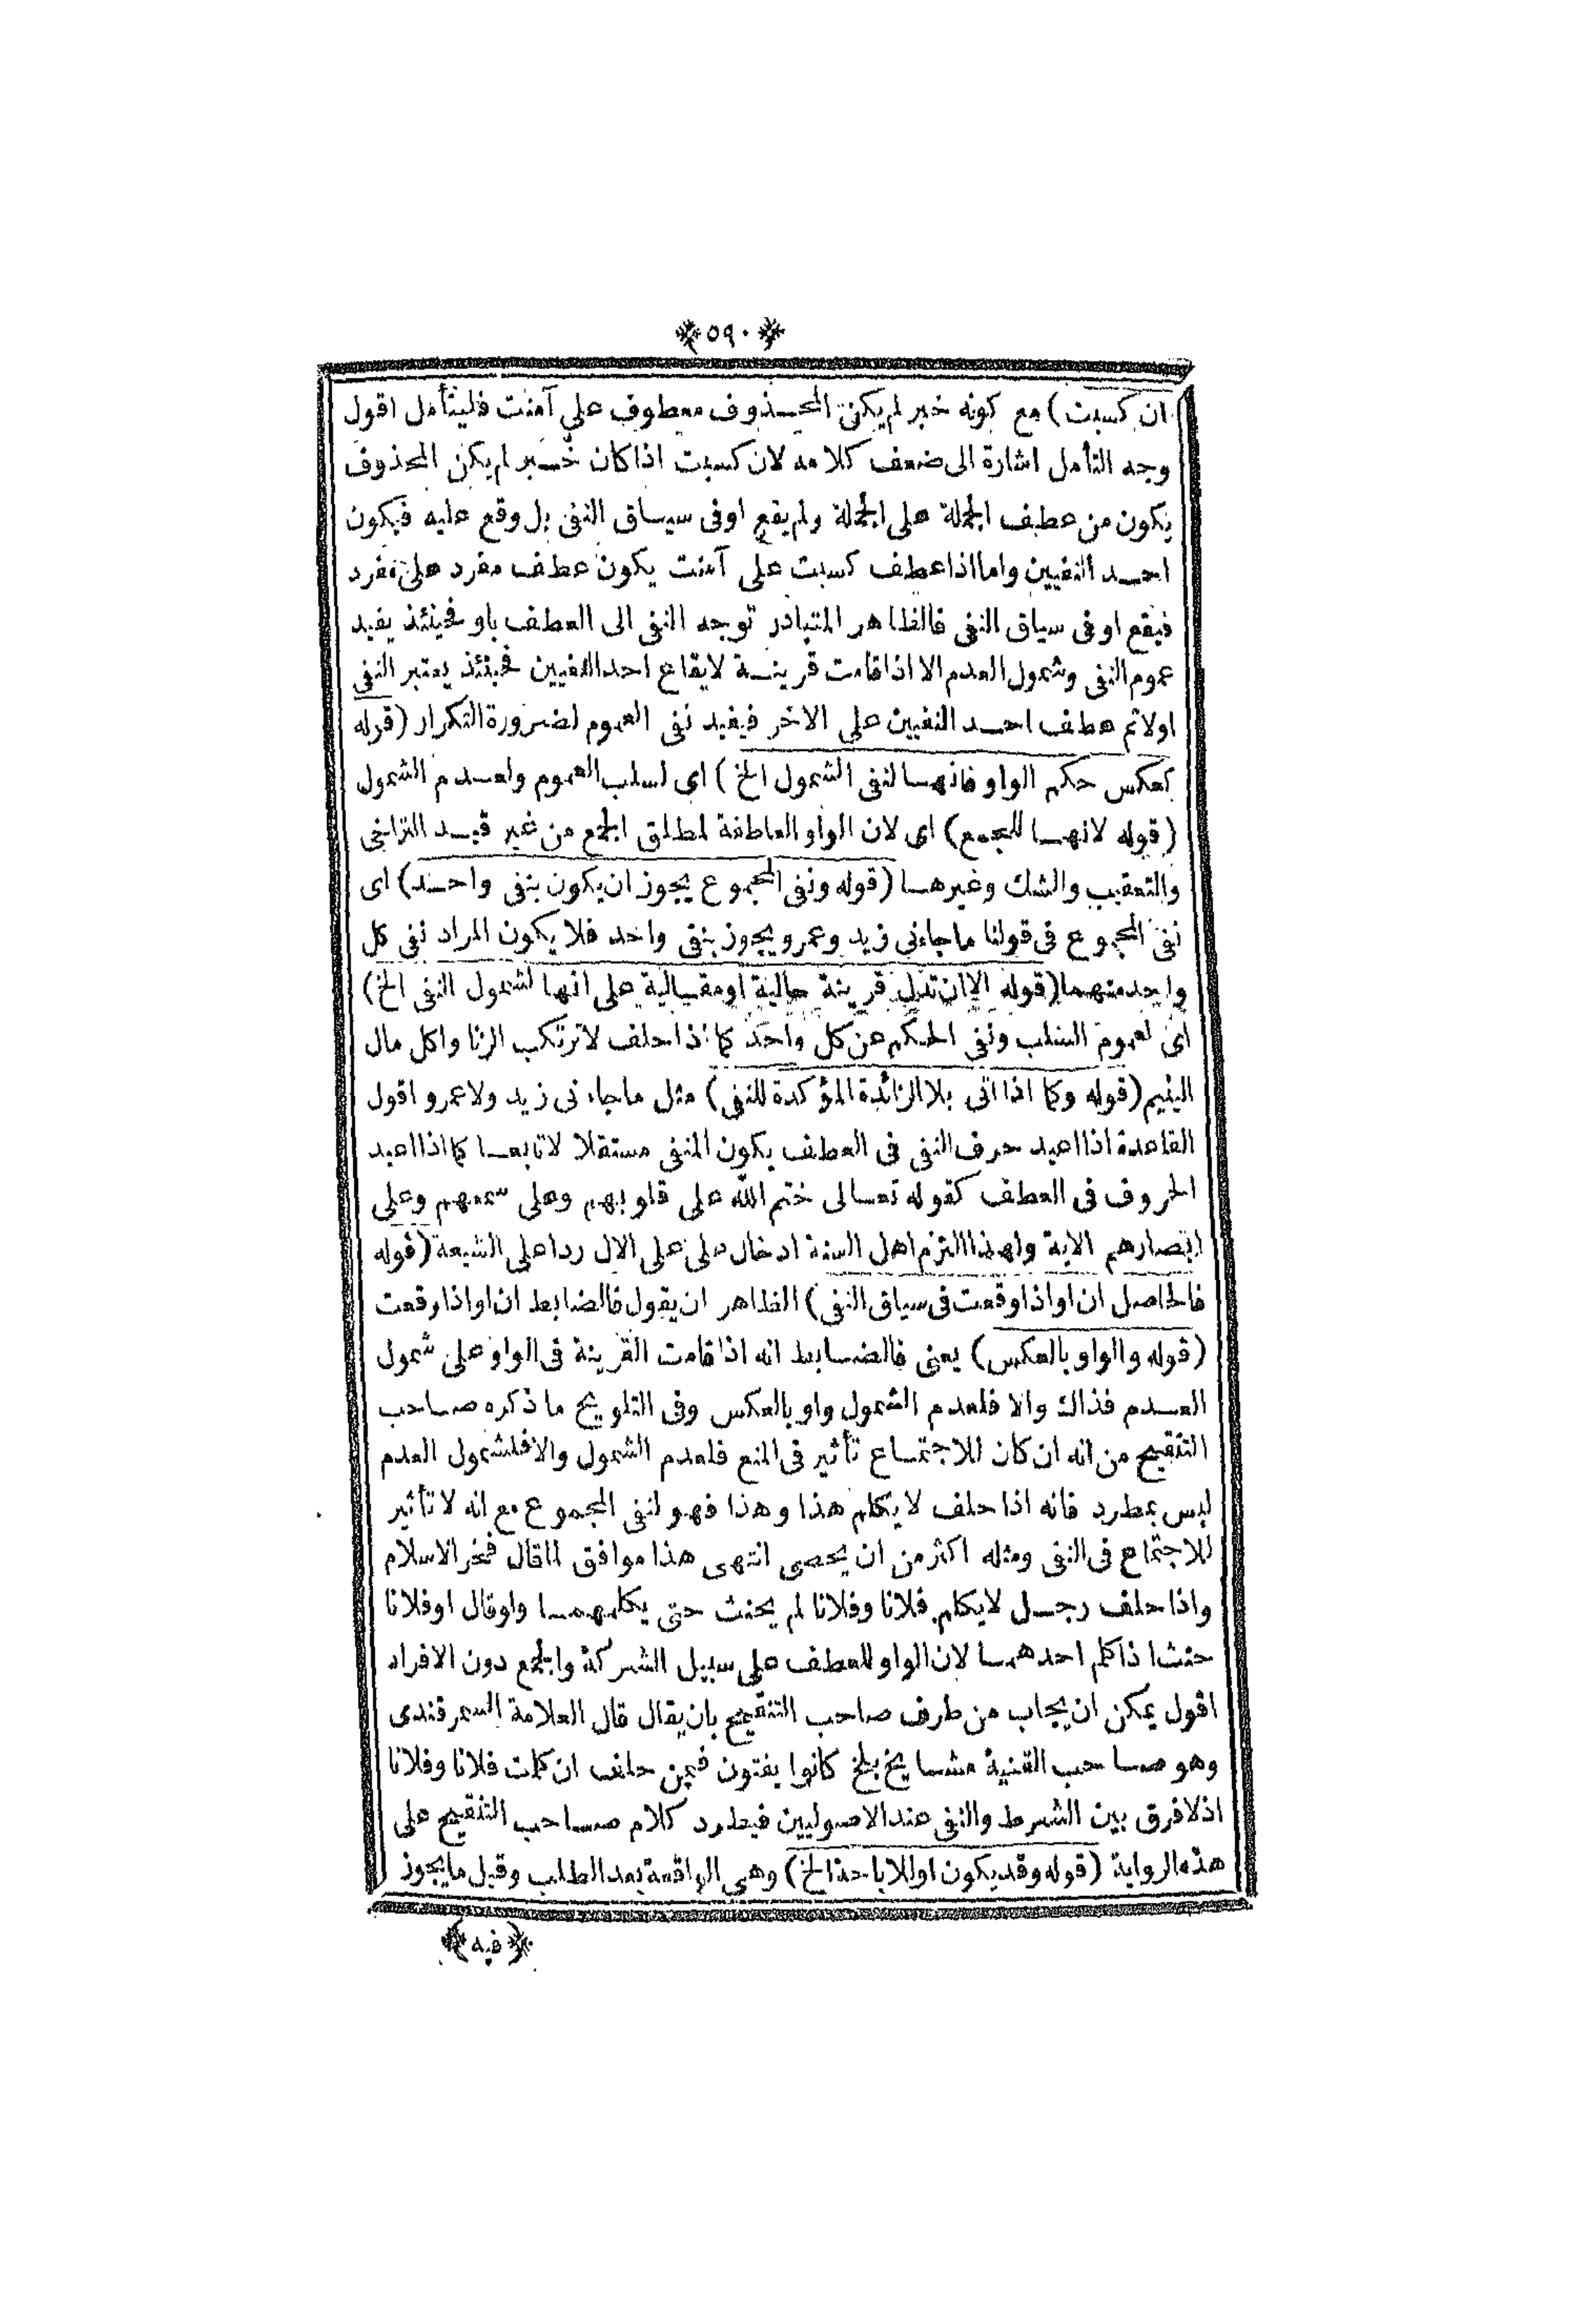 ﴿٥٩٠﴾
ان كسبت) مع كونه خبر لم يكن المحذوف معطوف على آمنت فليتأمل اقول
وجه التأمل اشارة الى ضعف كلامه لان كسبت اذا كان خبر لم يكن المحذوف
يكون من عطف الجملة على الجملة ولم يقع او فى سياق النفى بل وقع عليه فيكون
احد النفيين واما اذا عطف كسبت على آمنت يكون عطف مفرد على مفرد
فيقع او فى سياق النفى فالظاهر المتبادر توجه النفى الى العطف باو فحينئذ يفيد
عموم النفى وشمول العدم الا اذا قامت قرينة لايقاع احد النفيين فحينئذ يعتبر النفى
اولا ثم عطف احد النفيين على الاخر فيفيد نفى العموم لضرورة التكرار (قوله
كعكس حكم الواو فانها لنفى الشمول الخ) اى لسلب العموم ولعدم الشمول
(قوله لانها للجمع) اى لان الواو العاطفة لمطلق الجمع من غير قيد التراخى
والتعقيب والشك وغيرها (قوله ونفى المجموع يجوز ان يكون بنفى واحد) اى
نفى المجموع فى قولنا ما جاءنى زيد وعمرو يجوز بنفى واحد فلا يكون المراد نفى كل
واحد منهما (قوله الا ان تدل قرينة حالية او مقالية على انها لشمول النفى الخ)
اى لعموم السلب ونفى الحكم عن كل واحد كما اذا حلف لا ترتكب الزنا واكل مال
اليتيم (قوله وكما اذا اتى بلا الزائدة المؤكدة للنفى) مثل ما جاءنى زيد ولا عمرو اقول
القاعدة اذا اعيد حرف النفى فى العطف يكون المنفى مستقلا لا تابعا كما اذا اعيد
الحروف فى العطف كقوله تعالى ختم الله على قلوبهم وعلى سمعهم وعلى
ابصارهم الاية ولهذا التزم اهل السنة ادخال على على الال ردا على الشيعة (قوله
فالحاصل ان او اذا وقعت فى سياق النفى) الظاهر ان يقول فالضابط ان او اذا وقعت
(قوله والواو بالعكس) يعنى فالضابط انه اذا قامت القرينة فى الواو على شمول
العدم فذاك والا فلعدم الشمول واو بالعكس وفى التلويح ما ذكره صاحب
التنقيح من انه ان كان للاجتماع تأثير فى المنع فلعدم الشمول والا فلشمول العدم
ليس بمطرد فانه اذا حلف لا يكلم هذا وهذا فهو لنفى المجموع مع انه لا تأثير
للاجتماع فى النفى ومثله اكثر من ان يحصى انتهى هذا موافق لما قال فخر الاسلام
واذا حلف رجل لا يكلم فلانا وفلانا لم يحنث حتى يكلمهما ولو قال او فلانا
حنث اذا كلم احدهما لان الواو للعطف على سبيل الشركة والجمع دون الافراد
اقول يمكن ان يجاب من طرف صاحب التنقيح بان يقال قال العلامة السمرقندى
وهو صاحب القنية مشايخ بلخ كانوا يفتون فيمن حلف ان كلمت فلانا وفلانا
اذ لا فرق بين الشرط والنفى عند الاصوليين فيطرد كلام صاحب التنقيح على
هذه الرواية (قوله وقد يكون او للاباحة الخ) وهى الواقعة بعد الطلب وقيل ما يجوز
﴿فيه﴾